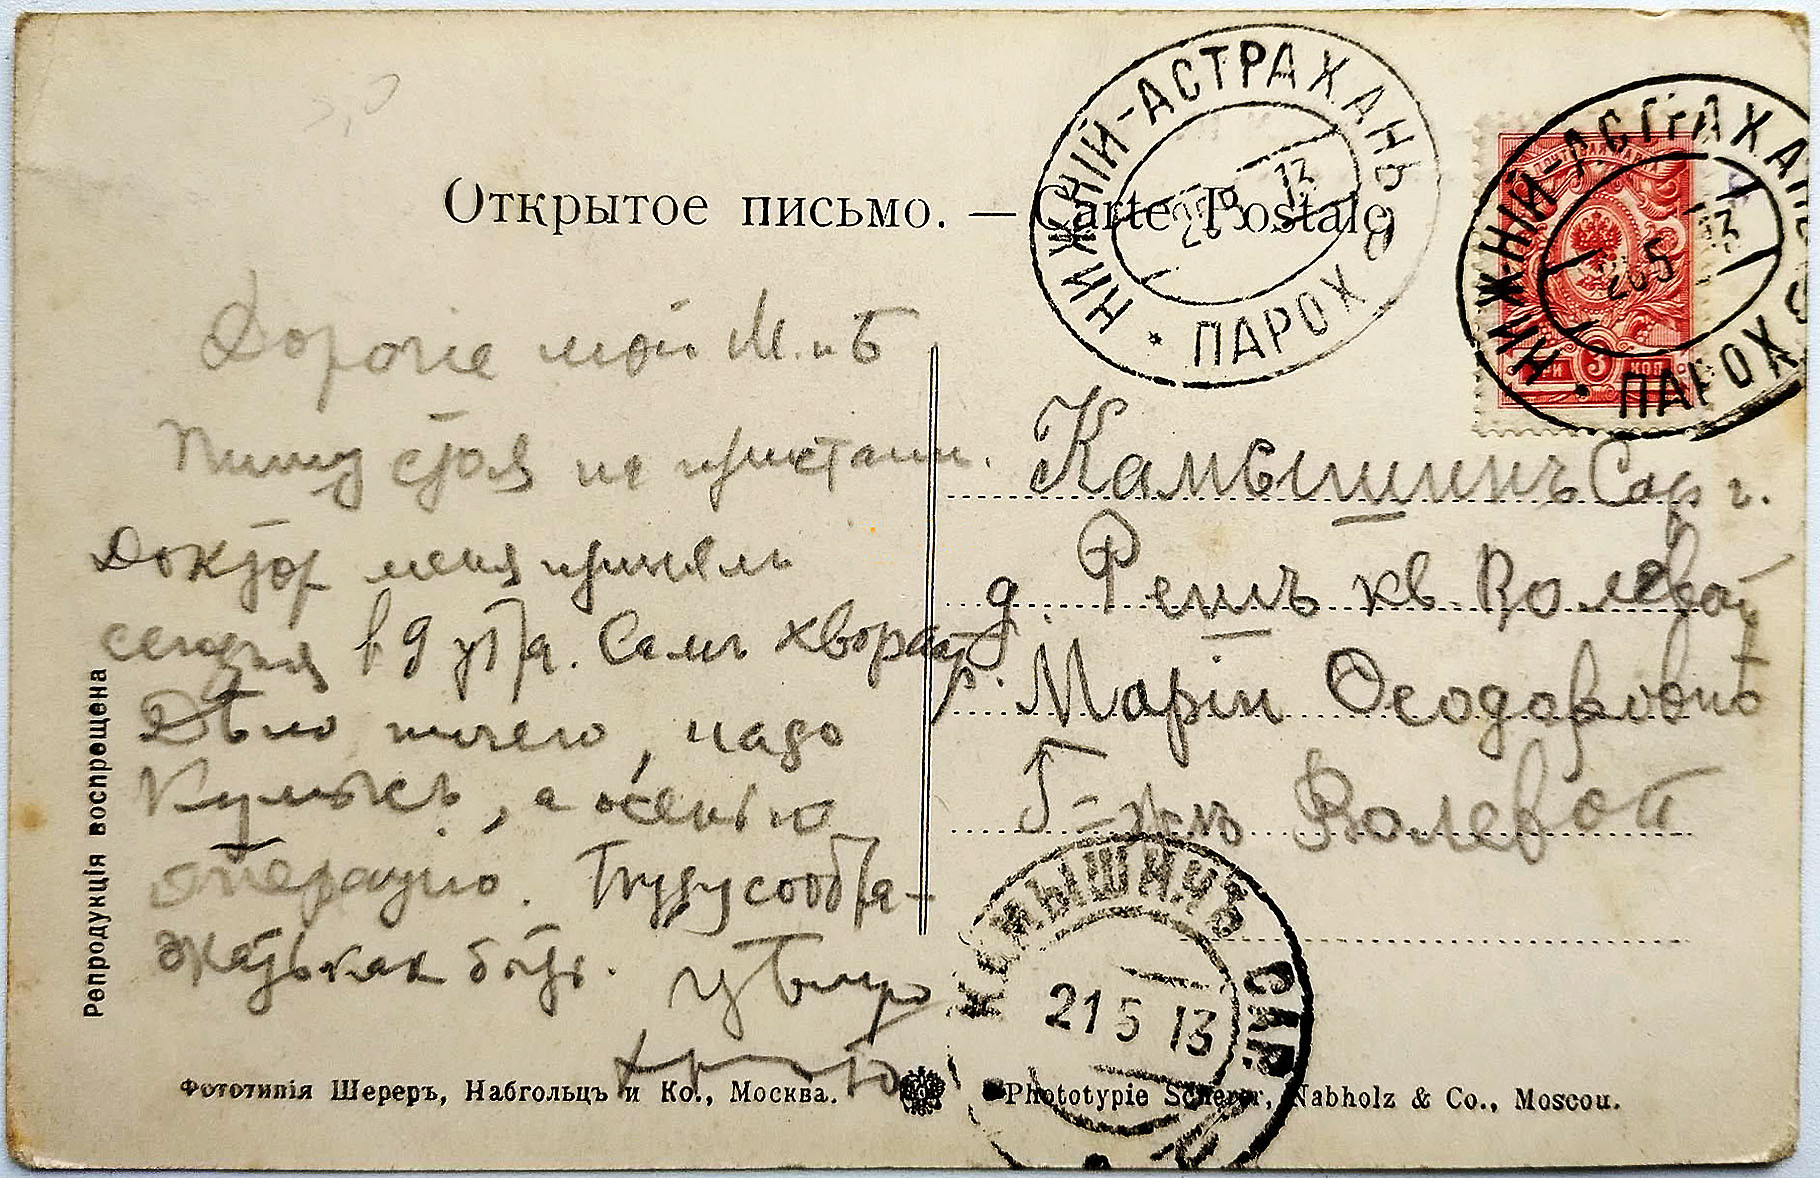 Открытое письмо. — Carte Postale
НИЖНІЙ-АСТРАХАНЬ
ПАРОХ
13
НИЖНІЙ-АСТРАХАНЬ
ПАРОХ
5 13
ТРИ 3 КОП
Дорогіе мои М. и Б
Пишу стоя на пристани.
Доктор меня принялъ
сегодня в 9 утра. Самъ хворает
Дѣло ничего, надо
Кумысъ, а осенью
операцію. Буду сообра-
жать как быть. Цѣлую
Камышинъ Сар г.
д. Решъ кв Волевой
Маріи Ѳеодоровнѣ
Г=жѣ Волевой
КАМЫШИНЪ САР.
21 5 13
Репродукція воспрещена
Фототипія Шереръ, Набгольцъ и Ко., Москва.
Phototypie Scherer, Nabholz & Co., Moscou.